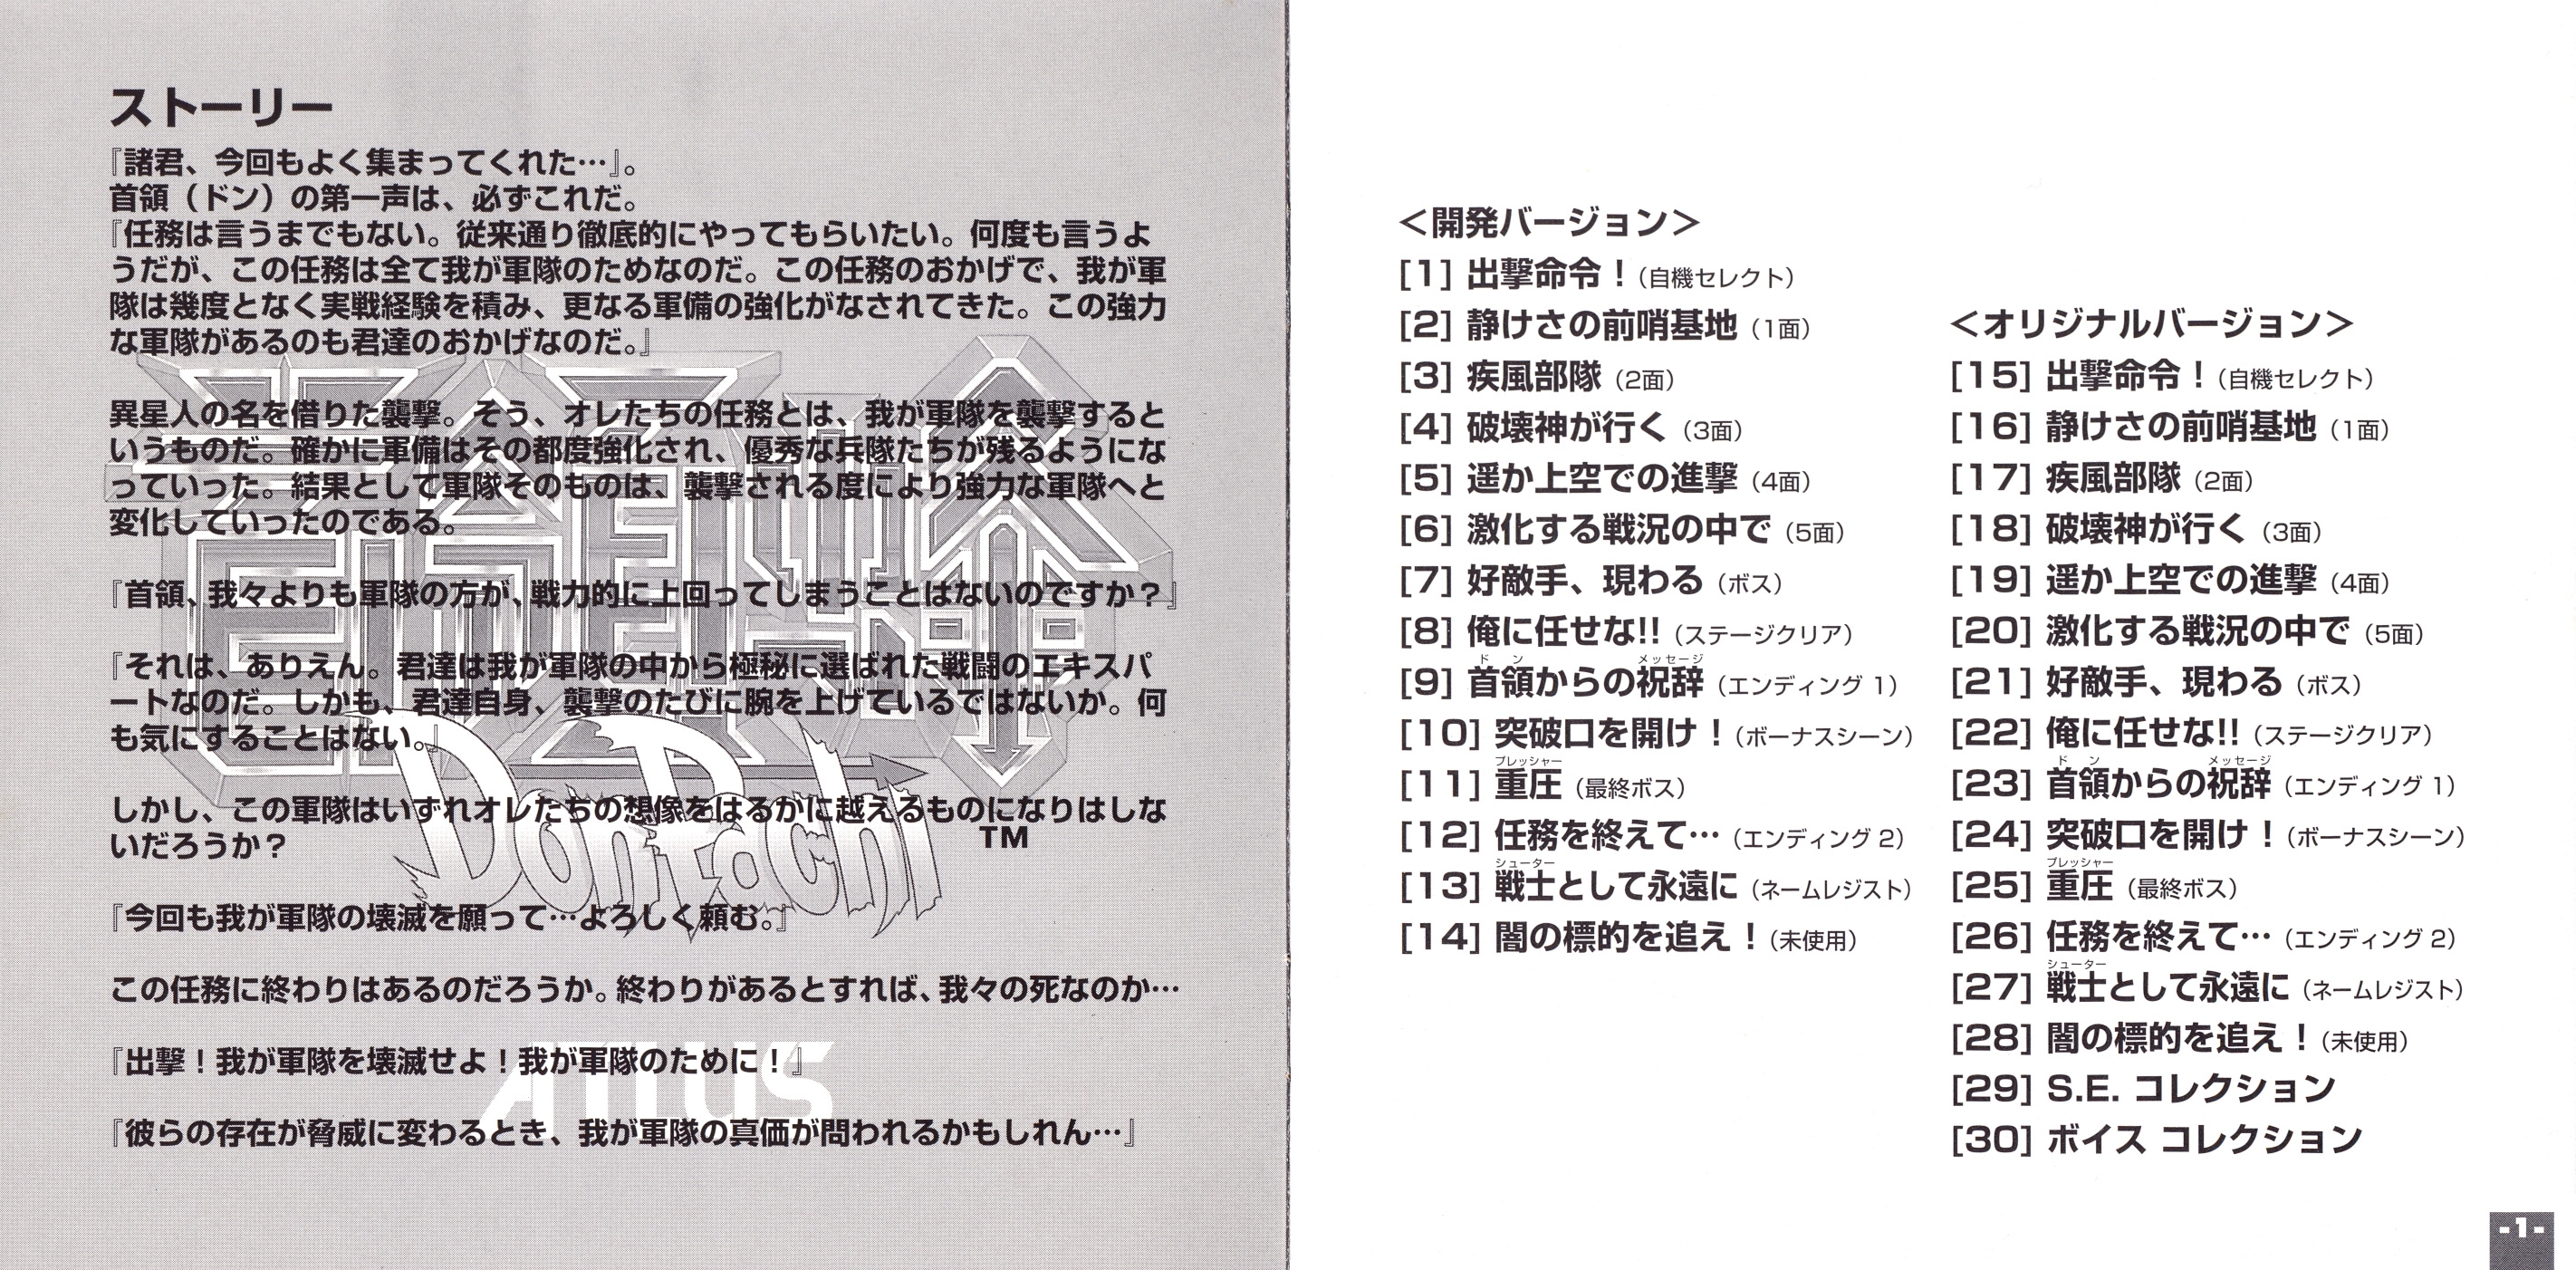 ストーリー
『諸君、今回もよく集まってくれた…』。
首領（ドン）の第一声は、必ずこれだ。
『任務は言うまでもない。従来通り徹底的にやってもらいたい。何度も言うよ
うだが、この任務は全て我が軍隊のためなのだ。この任務のおかげで、我が軍
隊は幾度となく実戦経験を積み、更なる軍備の強化がなされてきた。この強力
な軍隊があるのも君達のおかげなのだ。』
異星人の名を借りた襲撃。そう、オレたちの任務とは、我が軍隊を襲撃すると
いうものだ。確かに軍備はその都度強化され、優秀な兵隊たちが残るようにな
っていった。結果として軍隊そのものは、襲撃される度により強力な軍隊へと
変化していったのである。
『首領、我々よりも軍隊の方が、戦力的に上回ってしまうことはないのですか？』
『それは、ありえん。君達は我が軍隊の中から極秘に選ばれた戦闘のエキスパ
ートなのだ。しかも、君達自身、襲撃のたびに腕を上げているではないか。何
も気にすることはない。』
しかし、この軍隊はいずれオレたちの想像をはるかに越えるものになりはしな
いだろうか？
『今回も我が軍隊の壊滅を願って…よろしく頼む。』
この任務に終わりはあるのだろうか。終わりがあるとすれば、我々の死なのか…
『出撃！我が軍隊を壊滅せよ！我が軍隊のために！』
『彼らの存在が脅威に変わるとき、我が軍隊の真価が問われるかもしれん…』
首領蜂
DonPachi
TM
ATLUS
＜開発バージョン＞
[1] 出撃命令！（自機セレクト）
[2] 静けさの前哨基地（1面）
[3] 疾風部隊（2面）
[4] 破壊神が行く（3面）
[5] 遥か上空での進撃（4面）
[6] 激化する戦況の中で（5面）
[7] 好敵手、現わる（ボス）
[8] 俺に任せな!!（ステージクリア）
ドン メッセージ
[9] 首領からの祝辞（エンディング 1）
[10] 突破口を開け！（ボーナスシーン）
プレッシャー
[11] 重圧（最終ボス）
[12] 任務を終えて…（エンディング 2）
シューター
[13] 戦士として永遠に（ネームレジスト）
[14] 闇の標的を追え！（未使用）
＜オリジナルバージョン＞
[15] 出撃命令！（自機セレクト）
[16] 静けさの前哨基地（1面）
[17] 疾風部隊（2面）
[18] 破壊神が行く（3面）
[19] 遥か上空での進撃（4面）
[20] 激化する戦況の中で（5面）
[21] 好敵手、現わる（ボス）
[22] 俺に任せな!!（ステージクリア）
ドン メッセージ
[23] 首領からの祝辞（エンディング 1）
[24] 突破口を開け！（ボーナスシーン）
プレッシャー
[25] 重圧（最終ボス）
[26] 任務を終えて…（エンディング 2）
シューター
[27] 戦士として永遠に（ネームレジスト）
[28] 闇の標的を追え！（未使用）
[29] S.E. コレクション
[30] ボイス コレクション
-1-